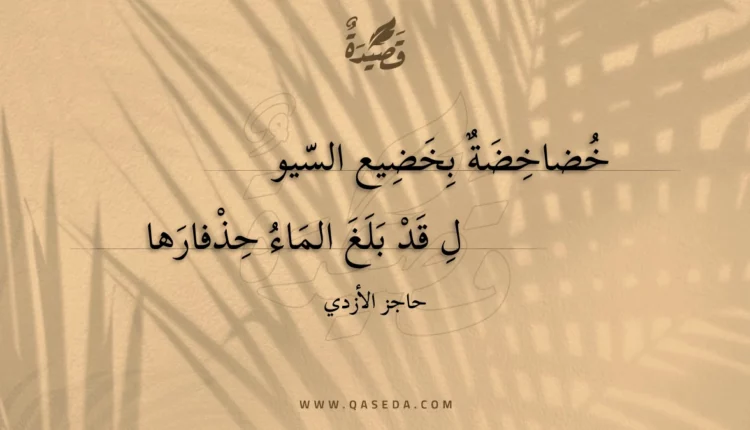 قَصِيْدَةٌ
خُضاخِضَةٌ بِخَضِيع السّيو
لِ قَدْ بَلَغَ المَاءُ حِذْفارَها
حاجز الأزدي
WWW.QASEDA.COM